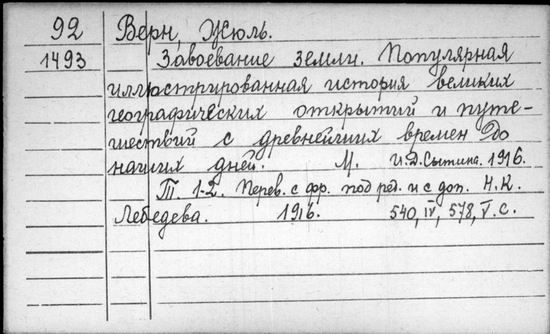 92 Верн, Жюль.
1493 Завоевание земли. Популярная
иллюстрированная история великих
географических открытий и путе-
шествий с древнейших времен до
наших дней. М. И.Д.Сытина. 1916.
Т. 1-2. Перев. с фр. под ред. и с доп. Н.К.
Лебедева. 1916. 540, IV, 578, V. с.